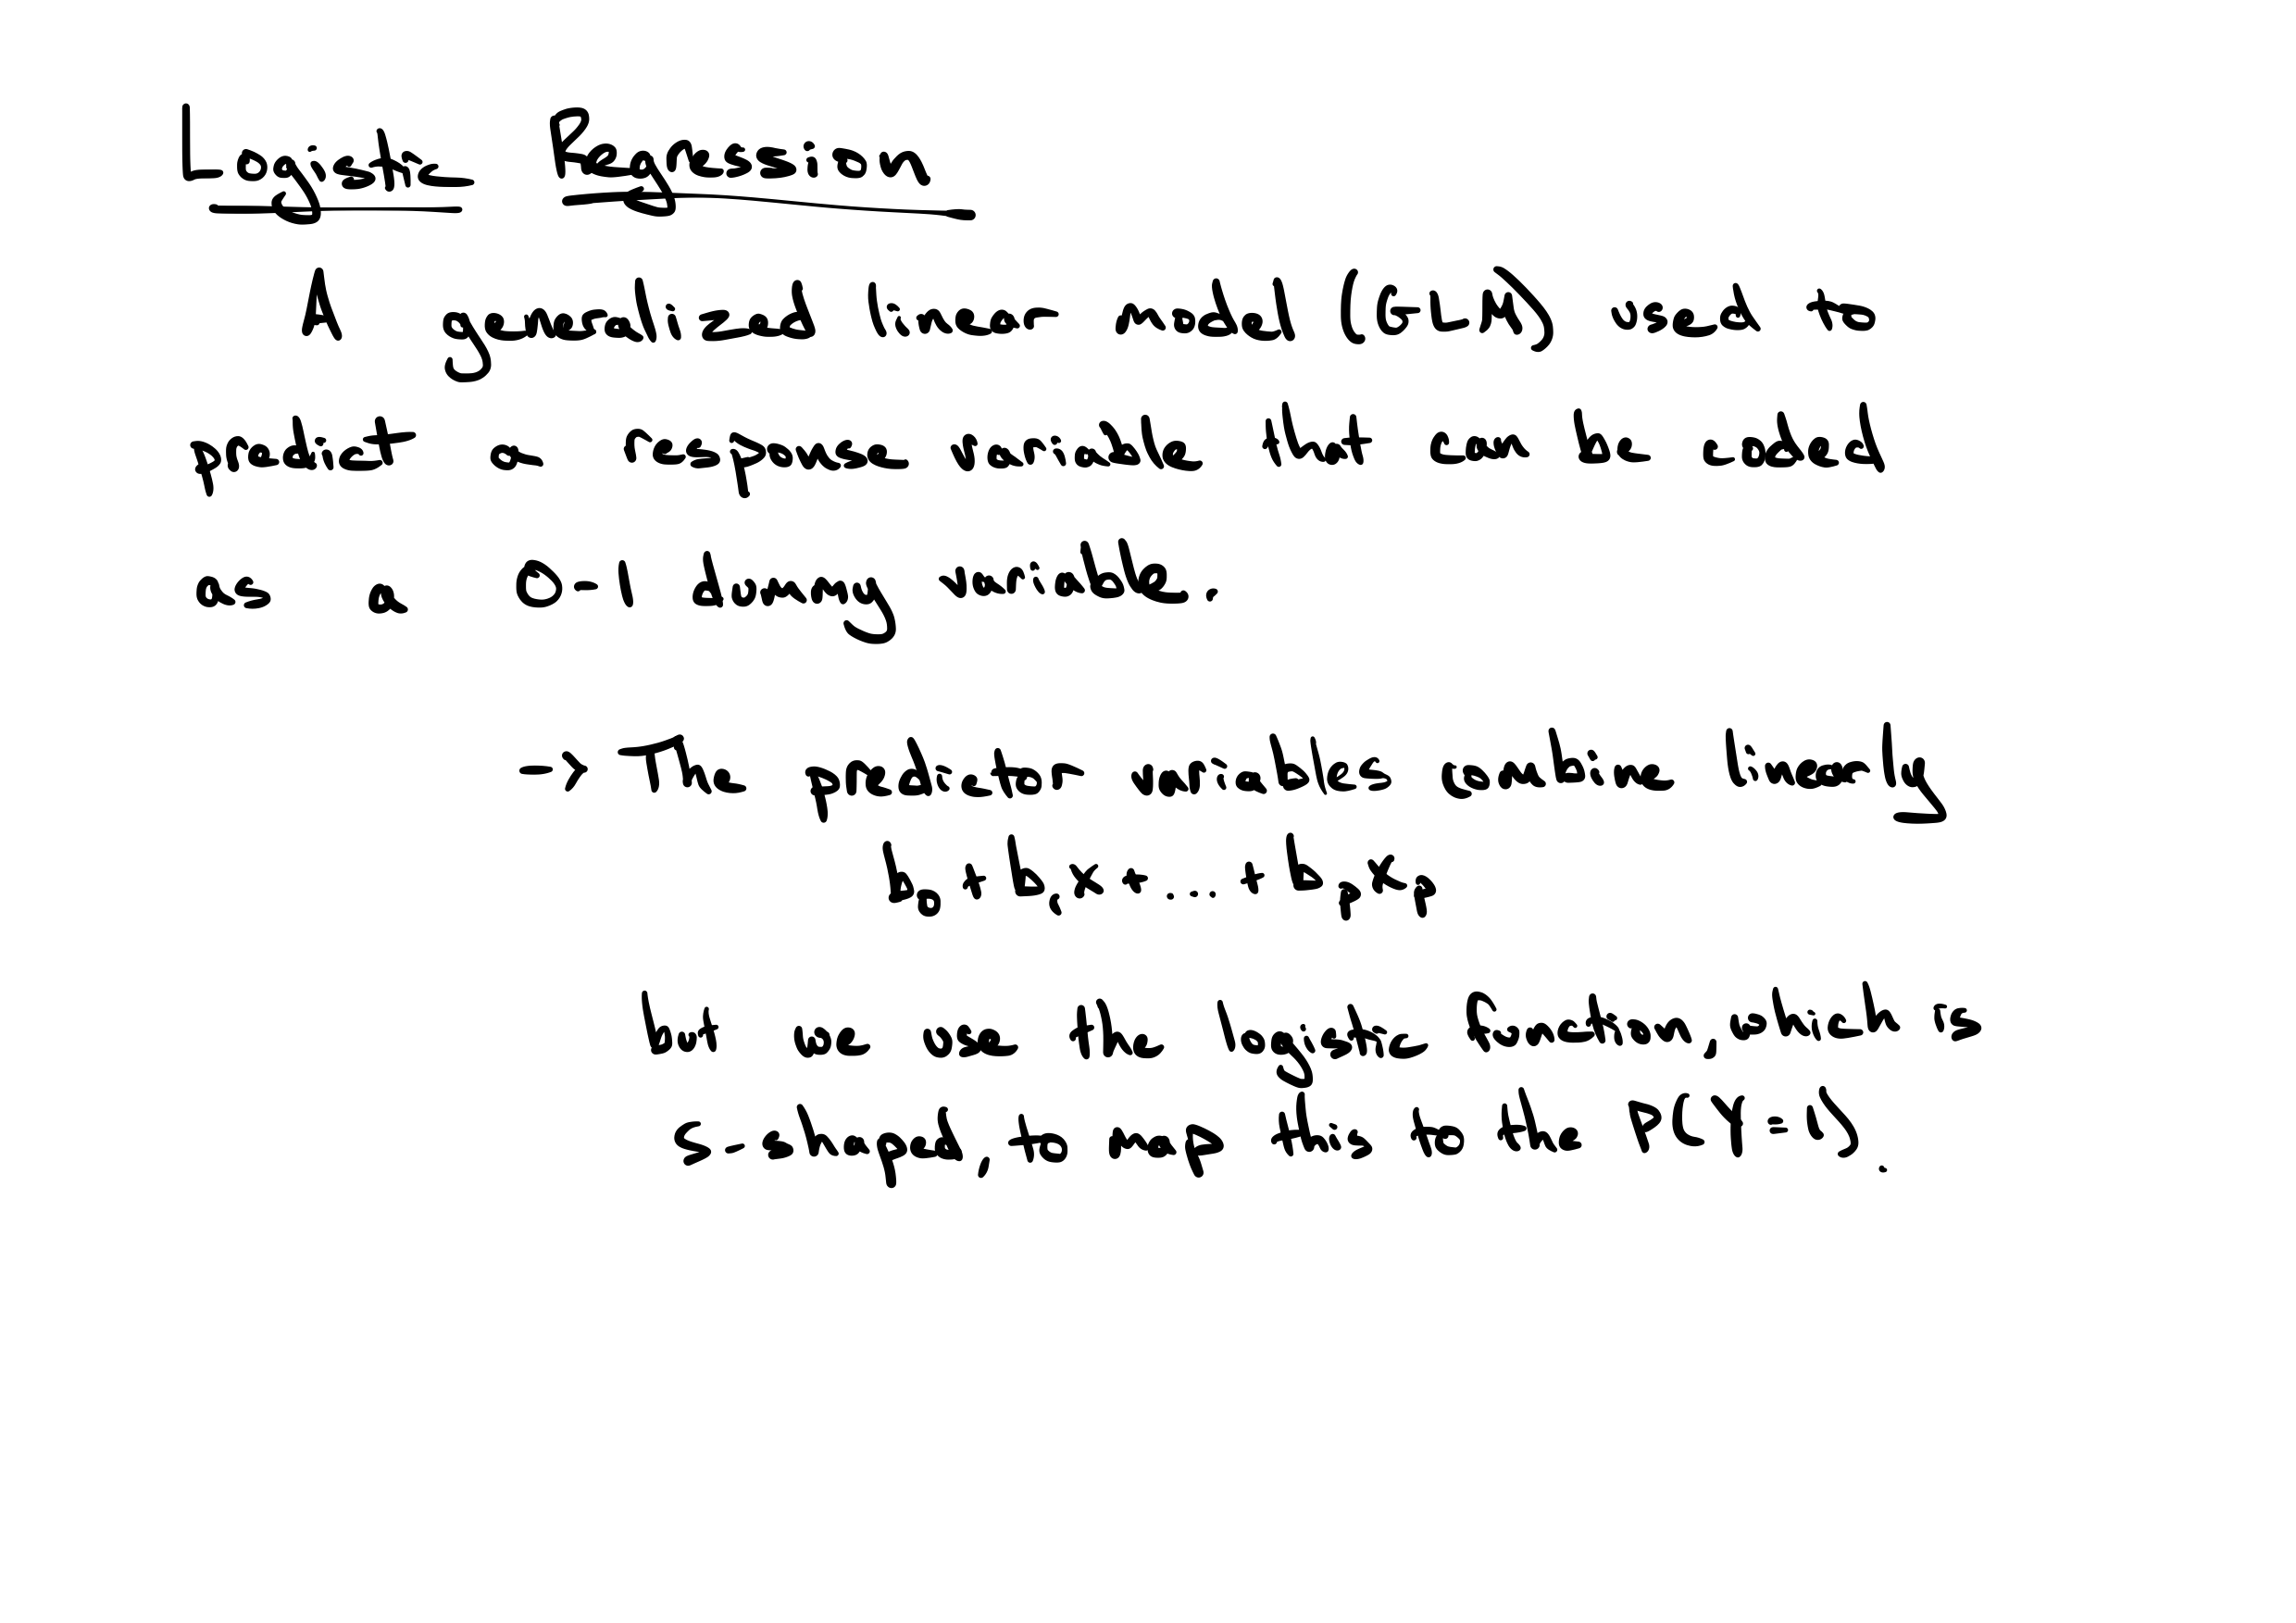 Logistic Regression
A generalized linear model (GLM) used to
predict a response variable that can be coded
as a 0-1 dummy variable.
→ The predictor variables combine linearly
b₀ + b₁x + ... + bₚxₚ
but we use the logistic function, which is
S-shaped, to map this to the P(Y=1).